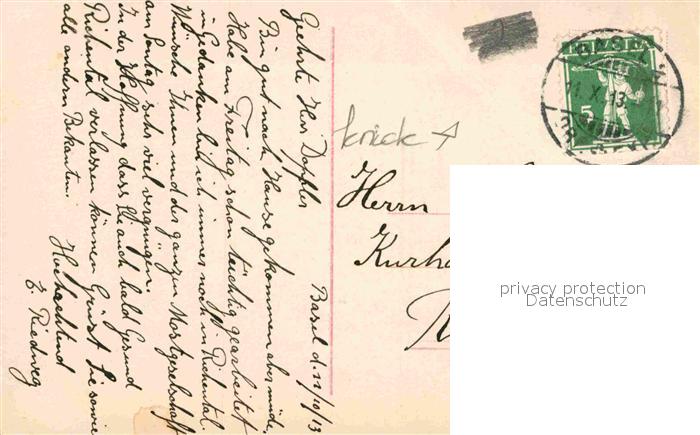 Basel d. 11/10/13
Geehrte Herr Doppler
Bin gut nach Hause gekommen aber müde,
Habe am Freitag schon tüchtig gearbeitet
in Gedanken bin ich immer noch in Richental.
Wünsche Ihnen und der ganzen Mostgesellschaft
am Sontag sehr viel vergnügen.
In der Hoffnung dass Sie auch bald Gesund
Richental verlassen können Grüsst Sie sowie
alle andern Bekanten.
Hochachtend
F. Riedweg
knick
Herrn
Kurha
BASEL
11.X.13
5
privacy protection
Datenschutz